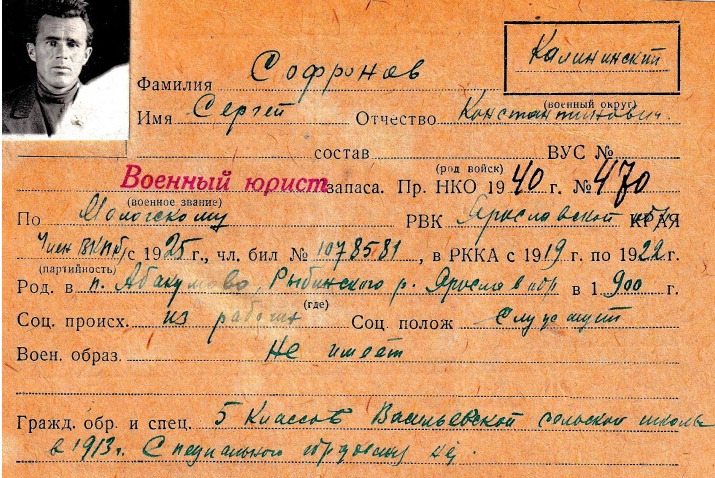 Калининский
(военный округ)
Фамилия Софронов
Имя Сергей Отчество Константинович.
состав ВУС №
(род войск)
Военный юрист запаса. Пр. НКО 1940 г. № 470
(военное звание)
По Мологскому РВК Ярославской обл КРАЯ
Член ВКПб/с 1925 г., чл. бил № 1078581, в РККА с 1919 г. по 1922 г.
(партийность)
Род. в п. Абакумово, Рыбинского р. Ярослав обл в 1900 г.
(где)
Соц. происх. из рабочих Соц. полож Служащий
Воен. образ. Не имеет
Гражд. обр. и спец. 5 классов Васильевской сельской школы
в 1913 г. Специального